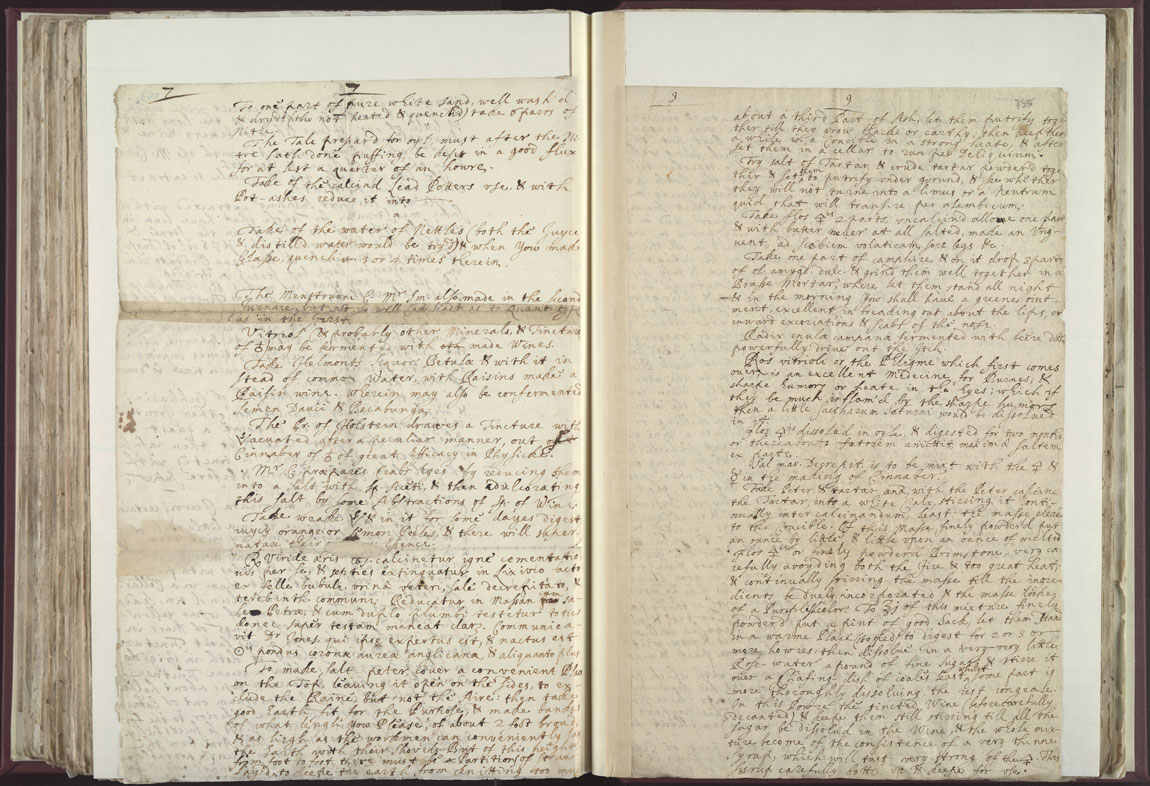 7 7
To one part of pure white sand, well wash'd
& dryd (tho not heated & quenched) take 6 parts of
Nitre.
The Talc prepar'd for oyl must after the Ni-
tre hath done puffing, be kept in a good flux
for at lest a quarter of an howre.
Take of the calcind Lead Potters use & with
Pot-ashes reduce it into
Take of the water of Nettles (both the Juyce
& distill'd water would be tryd) & when you made
Glasse, quench it 3 or 4 times therein.
The Menstruum C. Mr Sm. also made in the second
furnace, but not so well (at least as to quantity)
as in the first
Vitriol & probably other Minerals, & Tincture
of ♁ may be fermented with made Wines.
Take Helmonts Liquor Betulæ & with it in
stead of common Water, with Raisins make a
Raisin wine. Wherein may also be confermented
Semen Dauci & Becabunga.
The Gr. of Holstein drawes a Tincture with
evacuated after a peculiar manner, out of
Cinnaber of ♁ of great Efficacy in Physicke.
Mr C. prepares Crabs Eyes by reducing them
into a salt with sp. Aceti, & then edulcorating
this salt by some Abstractions of Sp. of Wine.
Take weake & in it for some dayes digest
juycy orange or Lemon Peeles, & there will
natare their Essence.
Rx Viride æris calcinetur igne cementatio-
nis per se, & septies extinguatur in Lixivio facto
ex felle bubulo urina veteri, sale decrepitato, &
terebinth communi. Reducatur in Massam cum sa-
le Petræ, & cum duplo Plumbi restetur totus
donec super testam maneat clar. Communica-
vit Dr Jones, qui ipse expertus est, & nactus est
☉is pondus coronæ aureæ anglicanæ & aliquanto plus
To make Salt peter, cover a convenient Place
on the Top, leaving it open on the sides, to ex-
clude the Raine, but not the Aire: then take
good Earth fit for the Purpose, & make bankes
of what length you Please, of about 2 foot broad,
& as high as the workmen can conveniently
the Earth with their shovels But of this height
from foot to foot there must be a Partition of straw
layd, to keepe the earth from knitting too much
9 9 785
about a third Part of Ash, let them putrify toge-
ther till they grow blacke or earthy, then keep them
a while in a Crucible in a strong heate, & after
set them in a cellar to run per Deliquium.
Try salt of Tartar, & crude tartar powder'd toge-
ther & set them to putrify under ground, & see whether
they will not turne into a limus or a Neutrum
quid that will transire per alembicum.
Take flos 2 parts, uncalcind allome one part
& with butter never at all salted, make an Ung-
uent, ad scabiem volaticam, sore legs &c.
Take one part of camphire & on it drop 3 parts
of ol amygd. dulc. & grind them well together in a
Brasse Mortar, where let them stand all night
& in the morning you shall have a greene oint-
ment, excellent in breading out about the lips, or
inward excoriations & scabs of the nose.
Radix enula campana fermented with beere doth
powerfully drive out the Itch.
Ros vitrioli or the Phlegme which first comes
over is an excellent medicine for Burnes, &
sharpe humors or heate in the Eyes; which if
they be much inflam'd by the sharpe humors
then a little saccharum Saturni would be dissolved
in it.
flos dissolv'd in oyle, & digested for two months
or thereabouts fœtorem amittit maximâ saltem
ex parte.
Sal mar. Decrepit. is to be mixt with the &
☿ in the making of Cinnaber.
Take Peter & Tartar, and with the Peter calcine
the Tartar into a white Calx, stirring it conti-
nually inter calcinandum, least the masse cleave
to the Crucible. Of this Masse finely powderd put
an ounce by little & little upon an ounce of melted
flos or finely powderd Brimstone, very ca-
refully avoyding both the fire & too great heat,
& continually stirring the masse till the ingre-
dients be duely incorporated & the masse looke
of a Purplish color. To ℥j of this mixture finely
powderd put a pint of good Sack, let them stand
in a warme Place stopt to digest for 2 or 3 or
more howres. then dissolve in a very very little
Rose-water a pound of fine Sugar & stirre it
over a Chafing dish of coales least whilst some part is
more thoroughly dissolving the rest congeale.
In this Powre the tincted Wine (before carefully
Decanted) & keepe them still stirring till all the
Sugar be dissolv'd in the Wine, & the whole mix-
ture become of the consistence of a very thinne
Syrup, which will tast very strong of the . This
Sirrup carefully bottle up & keepe for use.